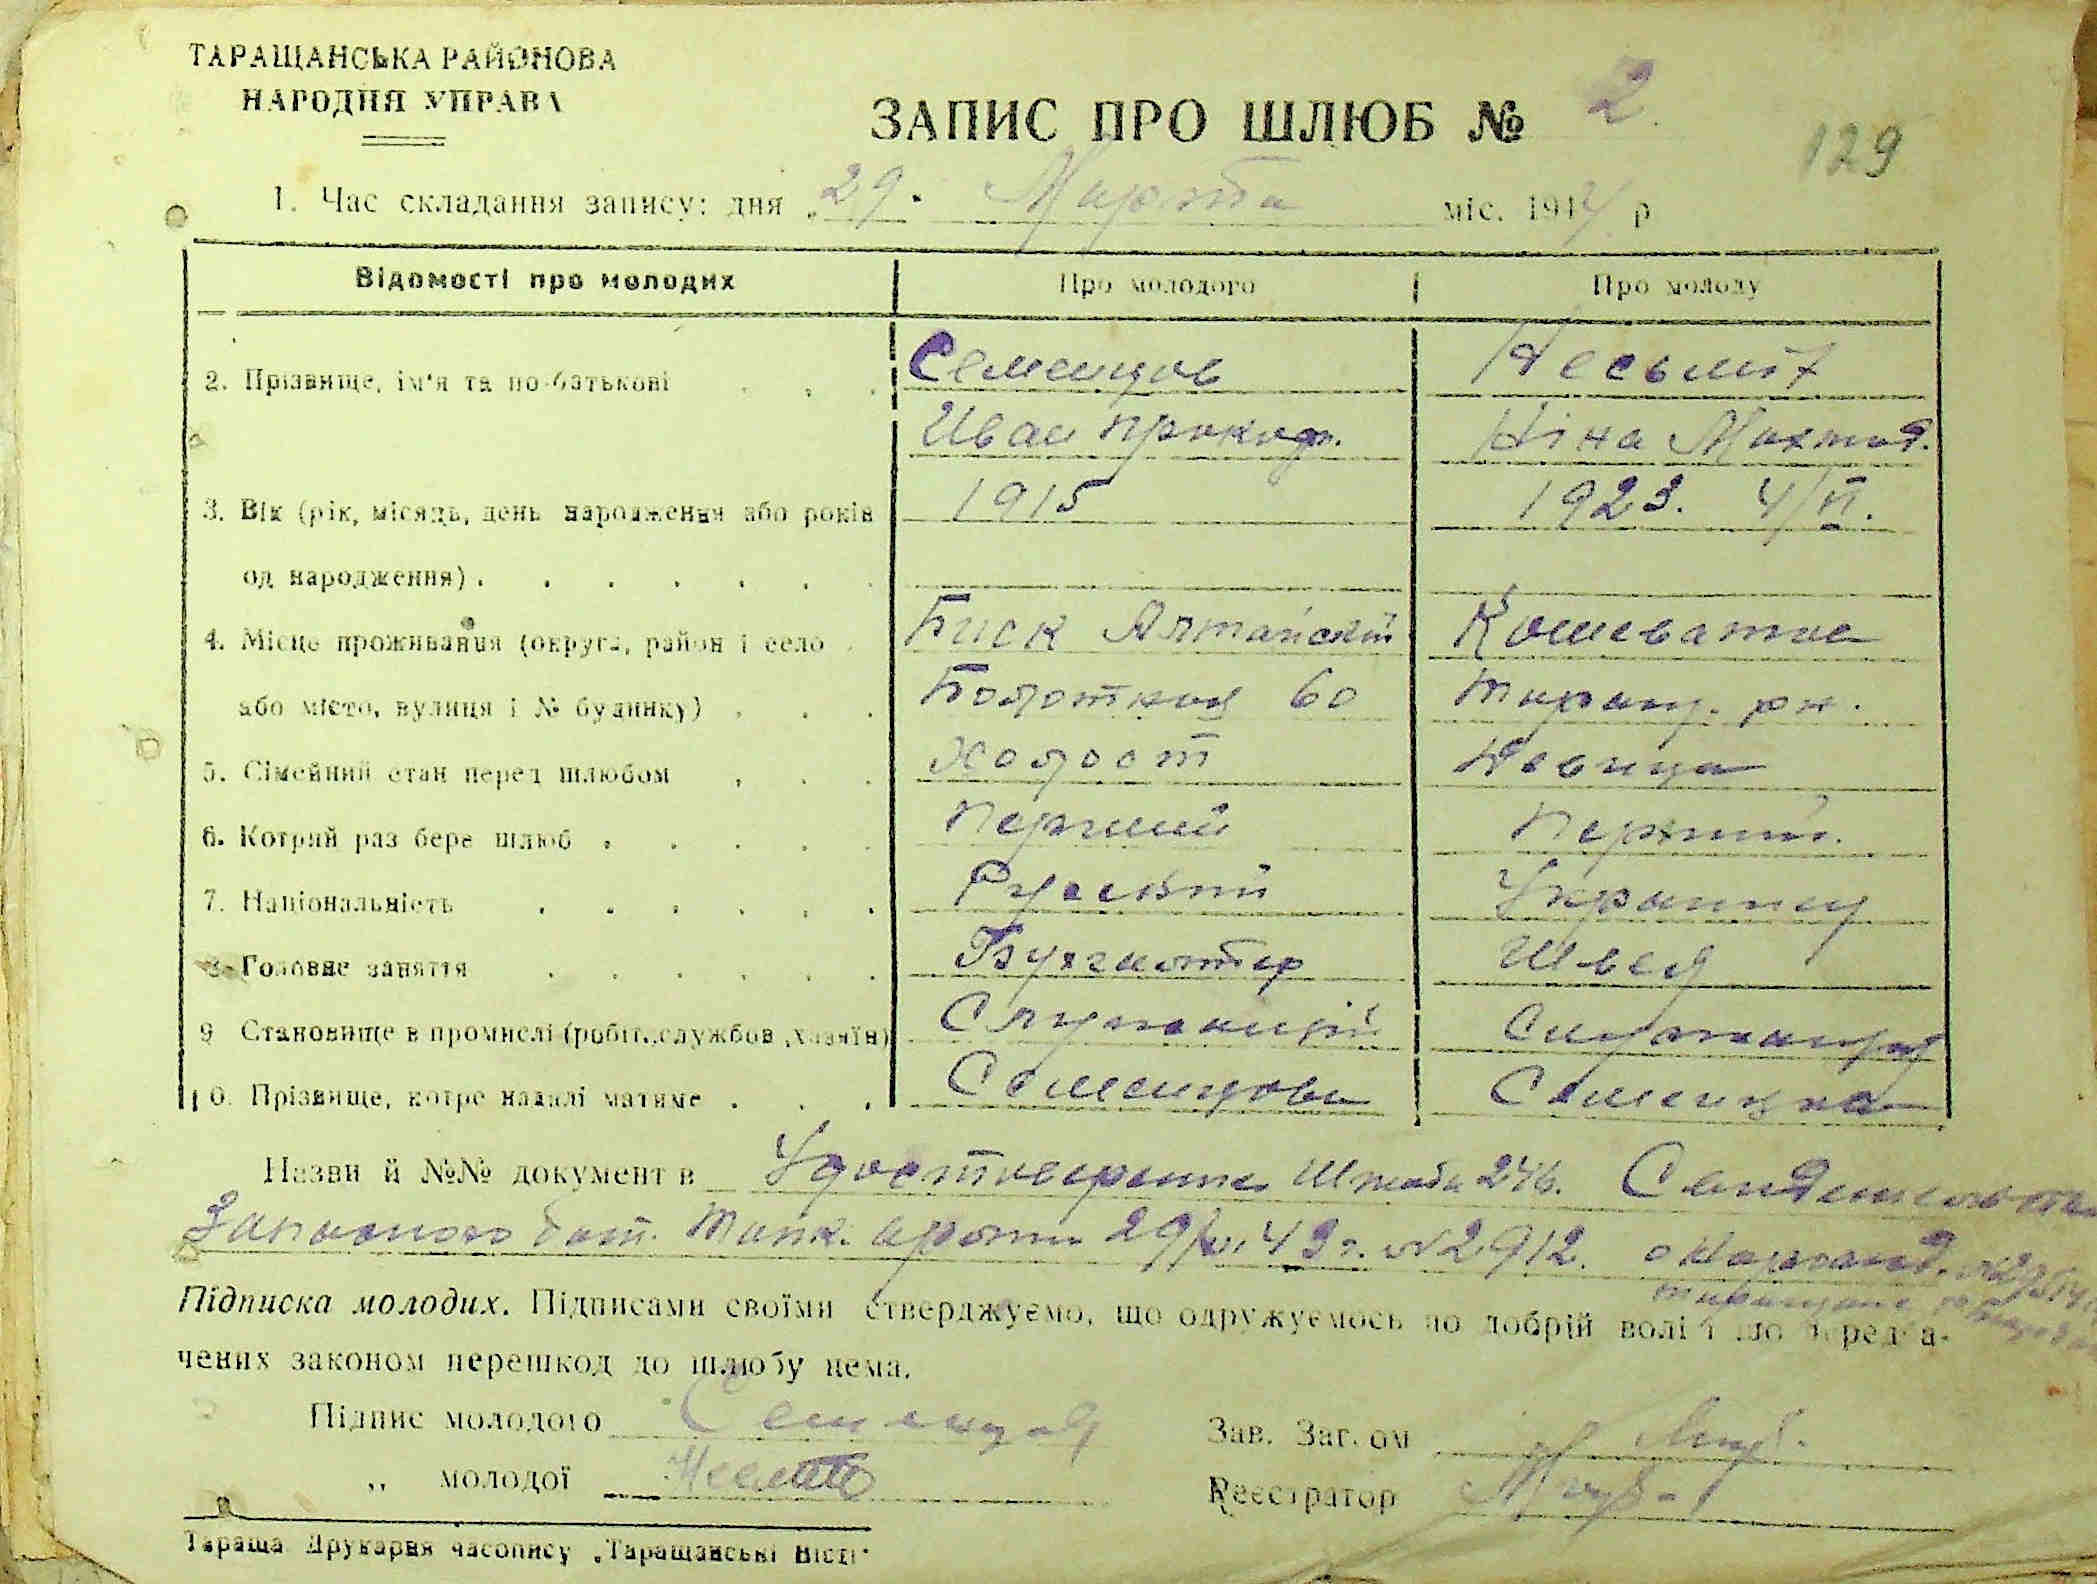 ТАРАЩАНСЬКА РАЙОНОВА
НАРОДНЯ УПРАВА
ЗАПИС ПРО ШЛЮБ № 2.
129
1. Час складання запису: дня „29. Марта міс. 194 р
Відомості про молодих Про молодого Про молоду
2. Прізвище, ім'я та по-батькові Семенцов Несьміт
Иван Прокоф. Ніна
3. Вік (рік, місяць, день народження або років 1915 1923. 4/VI.
од народження)
4. Місце проживання (округа, район і село Бийск Алтайский Кошеватое
або місто, вулиця і № будинку) Болотная 60 Таращ. рн.
5. Сімейний стан перед шлюбом Холост Девица
6. Котрий раз бере шлюб Перший Перший.
7. Національність Руский Украинц
8. Головне заняття Бухгалтер Швея
9 Становище в промислі (робіт., службов., хазяїн) Служащий Служащая
10. Прізвище, котре надалі матиме Семенцов Семенцова
Назви й №№ документ в Удостоверение Штаба
Запасного бат. 29/ 43 г. № 2912.
Підписка молодих. Підписами своїми стверджуємо, що одружуємось по добрій волі і що перед а-
чених законом перешкод до шлюбу нема.
Підпис молодого Семенцов Зав. Заг. ом
„ молодої Реєстратор
Тараща Друкарня часопису „Таращанські Вісті"